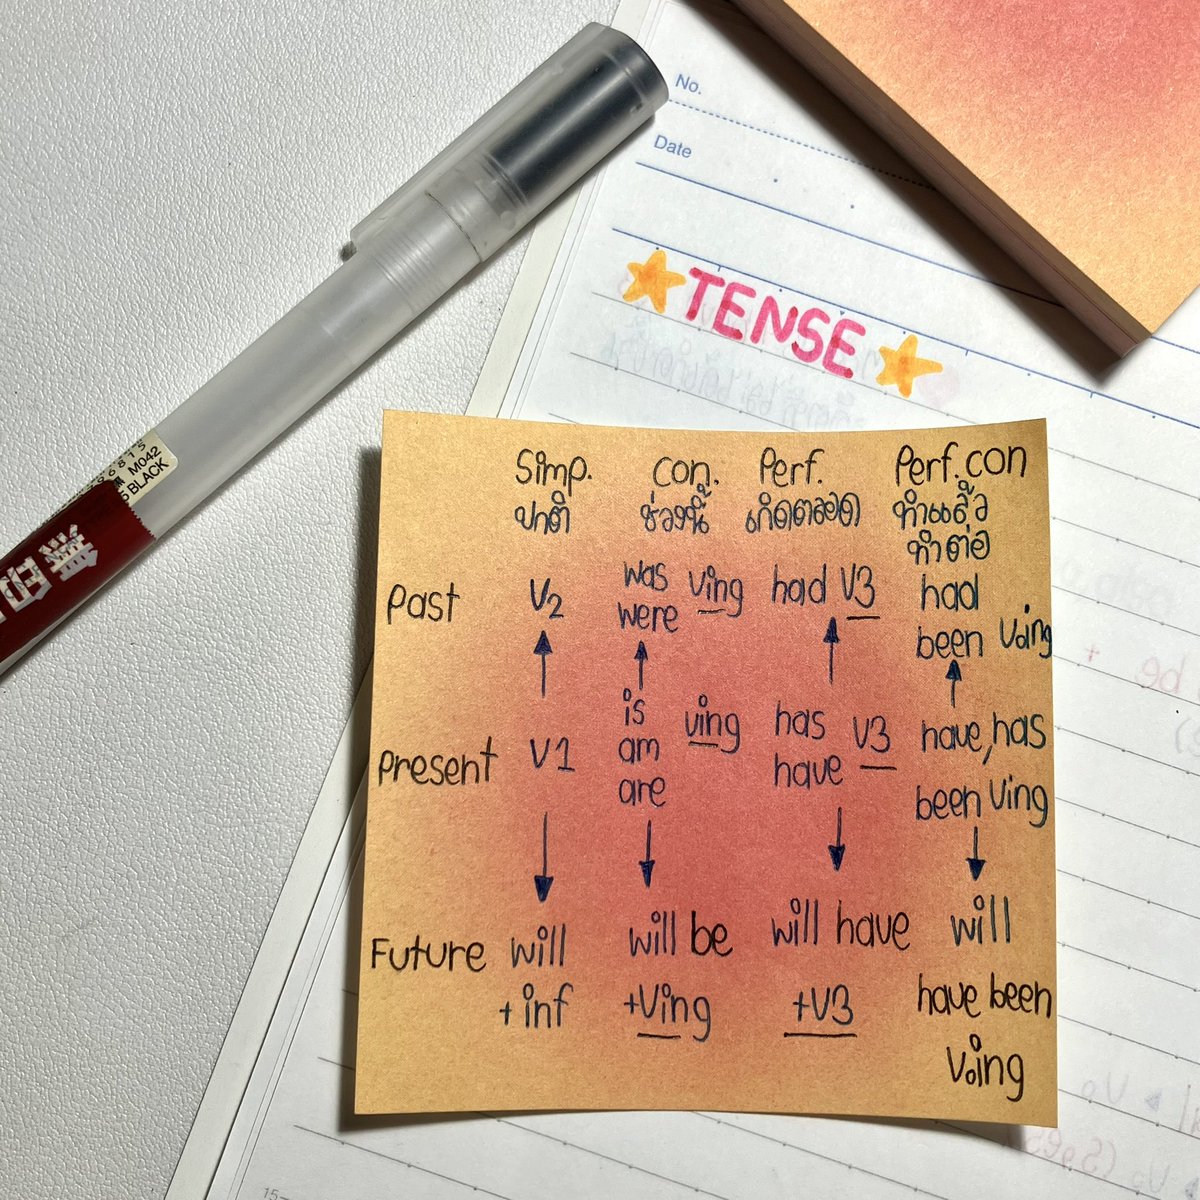 No.
Date
TENSE
Simp. con. Perf. Perf.con
ปกติ ช่วงนี้ เกิดตลอด ทำแล้ว
ทำต่อ
Past V2 was Ving had V3 had
were been Ving
is
Present V1 am Ving has V3 have, has
are have been Ving
Future will will be will have will
+ inf +Ving +V3 have been
Ving
M042
5 BLACK
無印
15